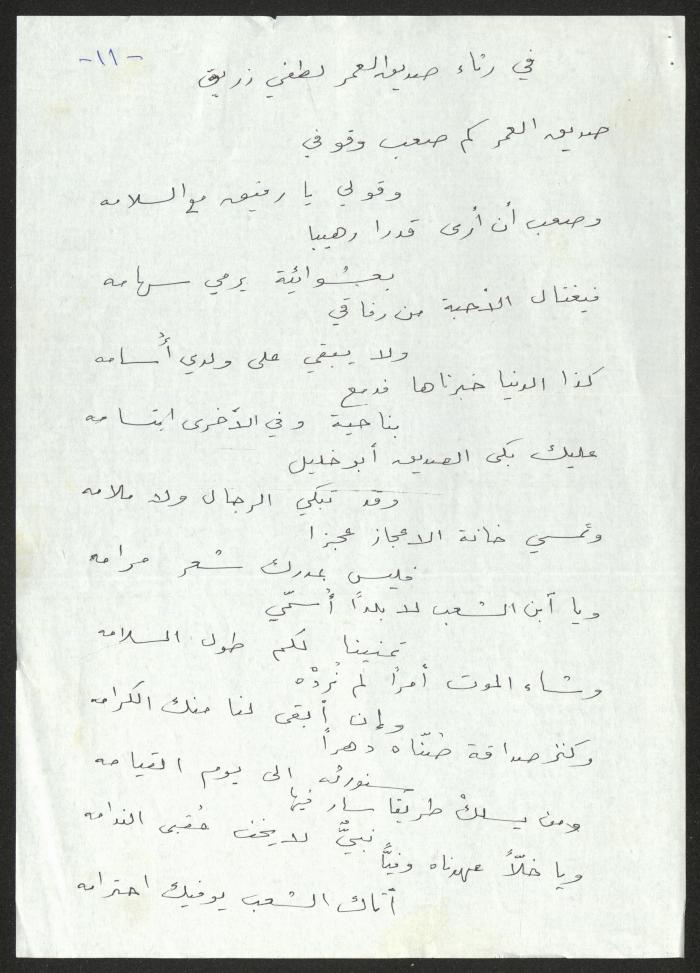 -١١-
في رثاء صديق العمر لطفي زريق
صديق العمر كم صعب وقوفي
وقولي يا رفيق مع السلامه
وصعب أن أرى قدرا رهيبا
بعشوائية يرمي سهامه
فيغتال الأحبة من رفاقي
ولا يبقي على ولدي أُسامه
كذا الدنيا خبرناها فدمع
بناحية وفي الأخرى ابتسامه
عليك بكى الصديق أبو خليل
وقد تبكي الرجال ولا ملامه
وتمسي خانة الاعجاز عجزا
فليس بمدرك شعر مرامه
ويا آبن الشعب لا بلدًا أُسمّي
تمنينا لكم طول السلامه
وشاء الموت أمرا لم نُردْه
وإن أبقى لنا منك الكرامه
وكنز صداقة صُنّاه دهراً
سنورثه الى يوم القيامه
ومن يسلكْ طريقًا سار فيها
نبيٌّ لا يخف عُقبى الندامه
ويا خلّاً عهدناه وفيًّا
أتاك الشعب يوفيك احترامه